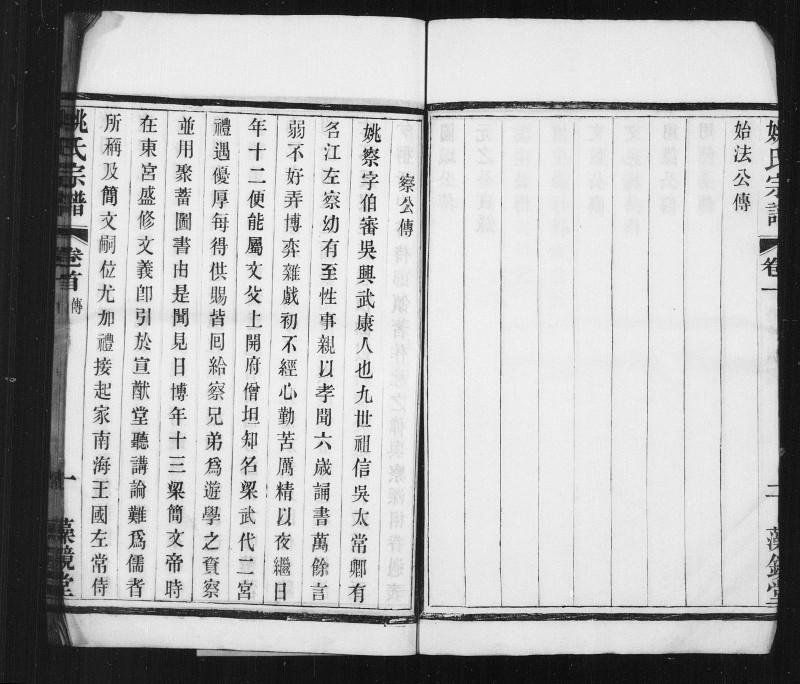 姚氏宗譜
卷一
二
藻鏡堂
始法公傳
察公傳
姚察字伯審吳興武康人也九世祖信吳太常卿有
名江左察幼有至性事親以孝聞六歲誦書萬餘言
弱不好弄博弈雜戲初不經心勤苦厲精以夜繼日
年十二便能屬文父上開府僧坦知名梁武代二宮
禮遇優厚每得供賜皆回給察兄弟爲遊學之資察
並用聚蓄圖書由是聞見日博年十三梁簡文帝時
在東宮盛修文義卽引於宣猷堂聽講論難爲儒者
所稱及簡文嗣位尤加禮接起家南海王國左常侍
姚氏宗譜
卷首
傳
一
藻鏡堂